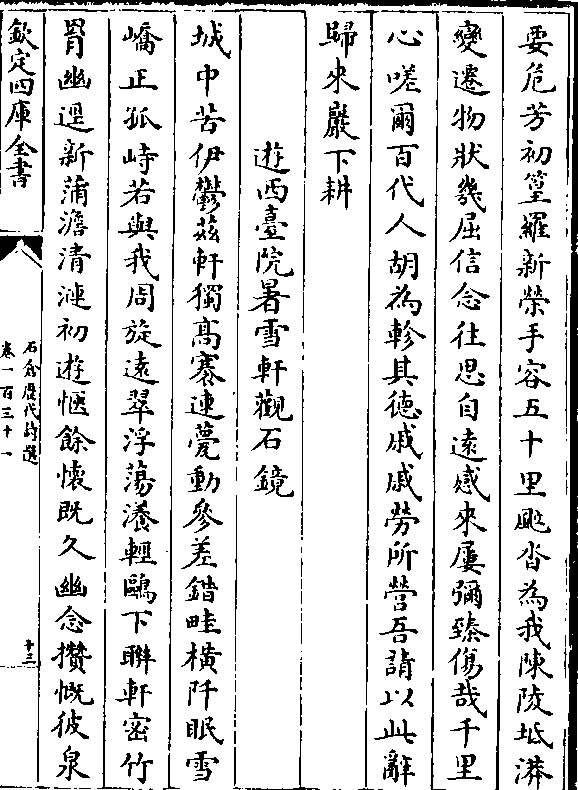 要危芳初篁羅新榮手容五十里颫沓為我陳陵坻漭
變遷物狀幾屈信念往思自遠感來屢彌臻傷哉千里
心嗟爾百代人胡為軫其德戚戚勞所營吾請以此辭
歸來巖下耕
遊西臺院暑雪軒觀石鏡
城中苦伊鬱茲軒獨高褰連甍動參差錯畦橫阡眠雪
嶠正孤峙若與我周旋遠翠浮蕩瀁輕鷗下聯軒密竹
罥幽逕新蒲澹清漣初遊愜餘懷既久幽念攢慨彼泉
欽定四庫全書
石倉歷代詩選
卷一百三十一
十三